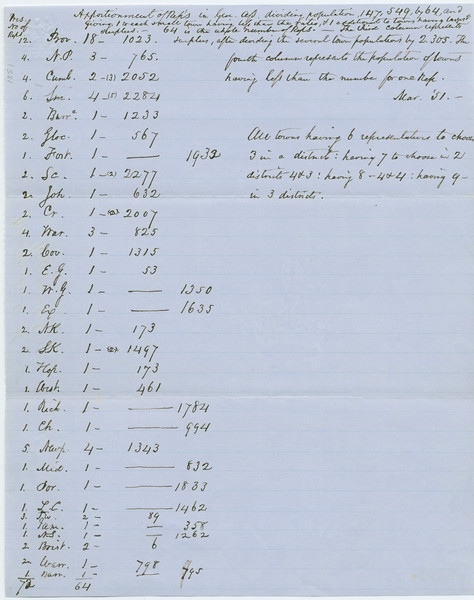 Apportionment of Reps. in Gen. Ass. dividing population 147,549, by 64, and
giving 1 to each small town having less than the ratio, & 1 additional to towns having largest
surplus. — 64 is the whole number of Reps. — The third column represents
surplus, after dividing the several town populations by 2305. The
fourth column represents the population of towns
having less than the number for one Rep.
Mar. 31. —
All towns having 6 representatives to choose
3 in a district: having 7 to choose in 2
districts 4 & 3: having 8 - 4 & 4: having 9 -
in 3 districts. -
Pres.
No of
Reps.
12. Prov. 18 1023.
4. N.P. 3 - 765.
4. Cumb. 2 - (3) 2052
6. Sm. 4 - (5) 2284
2. Burr. 1 - 1233
2. Gloc. 1 - 567
1. Fost. 1 - — 1932
2. Sc. 1 - (2) 2277
2. Joh. 1 - 632
2. Cr. 1 - (2) 2007
4. War. 3 - 825
2. Cov. 1 - 1315
1. E.G. 1 - 53
1. W.G. 1 - — 1350
1. Ex. 1 - — 1635
2. N.K. 1 - 173
2. S.K. 1 - (2) 1497
1. Hop. 1 - 173
1. West. 1 - 461
1. Rich. 1 - — 1784
1. Ch. 1 - — 994
5. Newp. 4 - 1343
1. Mid. 1 - — 832
1. Por. 1 - — 1833
1. L.C. 1 - — 1462
3. Tiv. 2 - 89
1. Jam. 1 - — 358
1. N.S. 1 - — 1262
2. Brist. 2 - 6
2. Warr. 1 - 798
1 Barr. 1 — 795
72 64